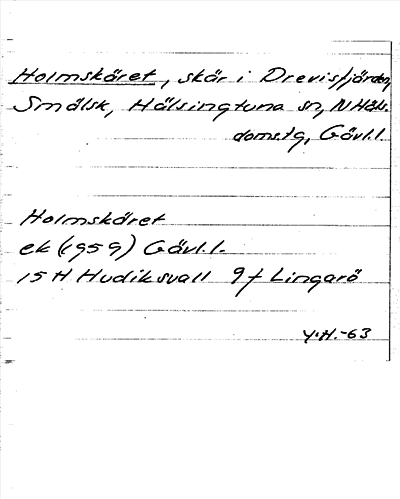 Holmskäret, skär i Drevisfjärden,
Smålsk, Hälsingtuna sn, N Häls.
doms.tg, Gävl.l.
Holmskäret
ek (1959) Gävl.l.
15 H Hudiksvall 9f Lingarö
Y.H.-63